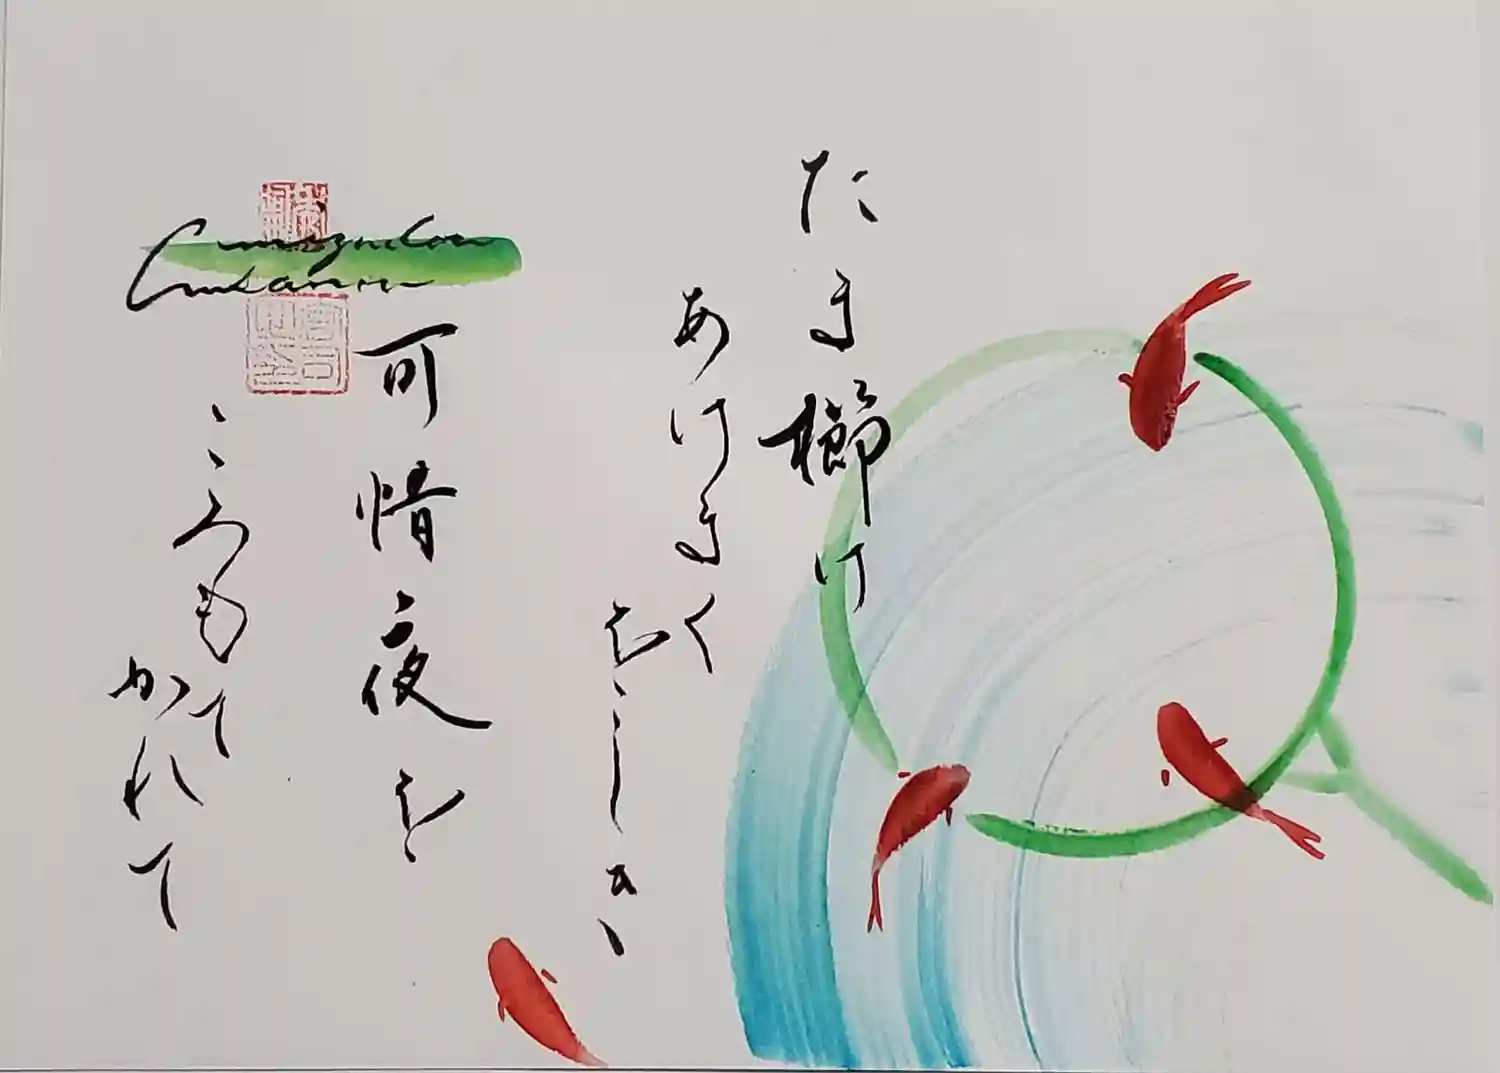 たま櫛け
あけまく
をしき
可惜夜を
ころもて
かれて